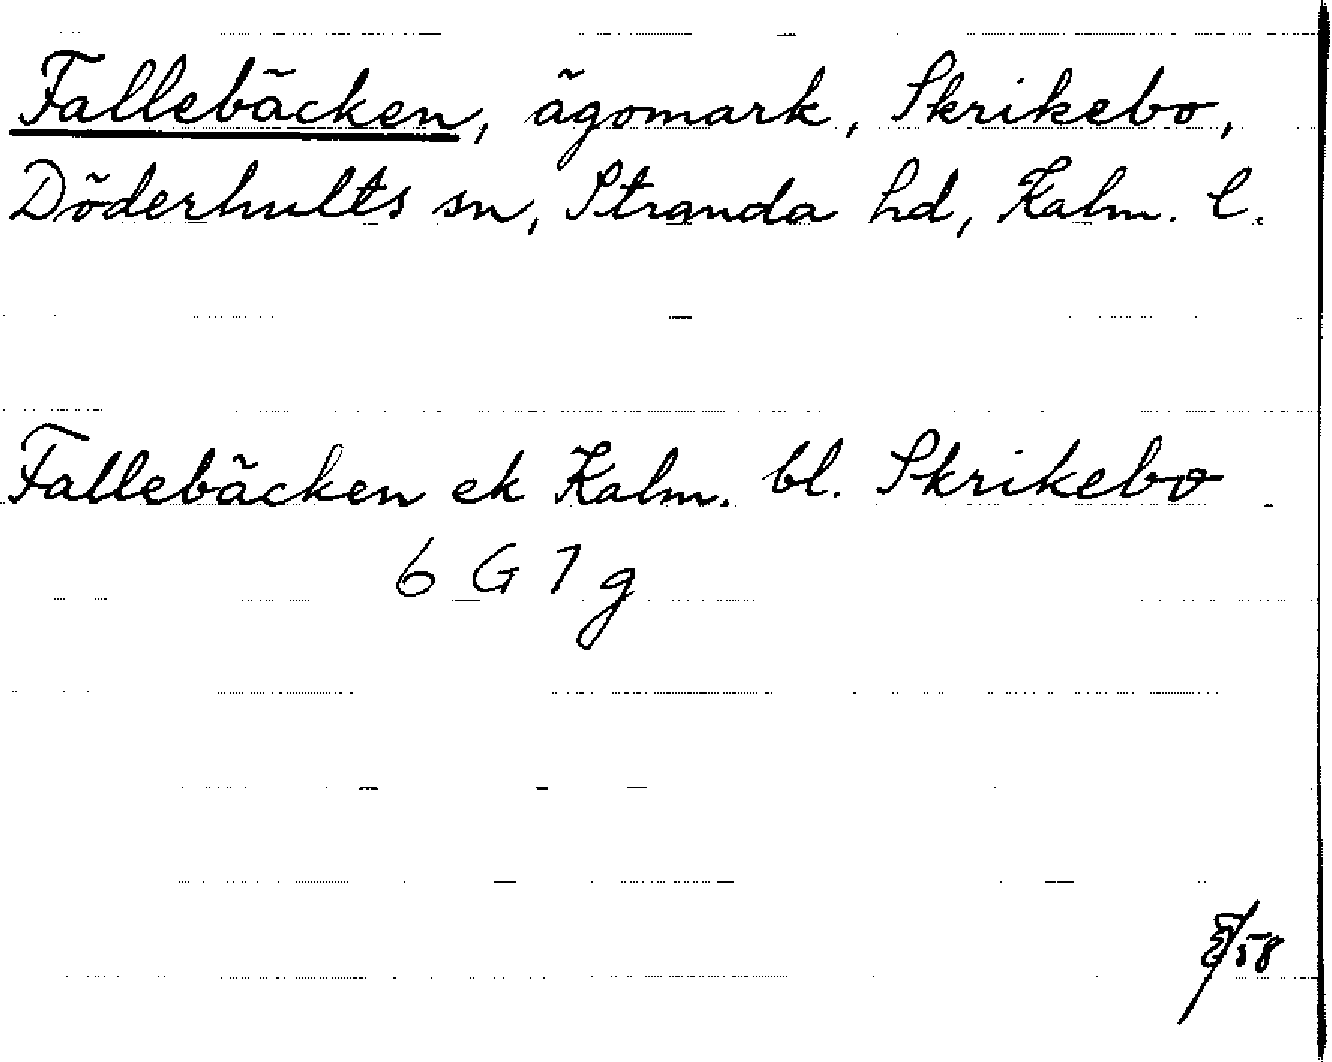 Fallebäcken, ägomark, Skrikebo,
Döderhults sn, Stranda hd, Kalm. l.
Fallebäcken ek Kalm. bl. Skrikebo
6 G 7 g
58